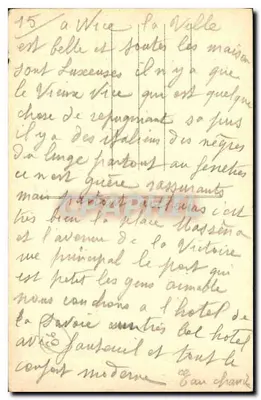 15/ a Nice la Ville
est belle et toutes les maison
sont Luxeuses il n'y a que
le Vieux Nice qui est quelque
chose de repugniant sa pus
il y a des italiens des nègres
Du linge partout au fenetres
ce n'est guère rassurants
mais partout c'est
très bien la place Masséna
et l'avenue de la Victoire
rue principal le port qui
est petit les gens aimable
nous couchons a l'hotel de
la Savoie un très bel hotel
avec fauteuil et tout le
confort moderne Eau chaude